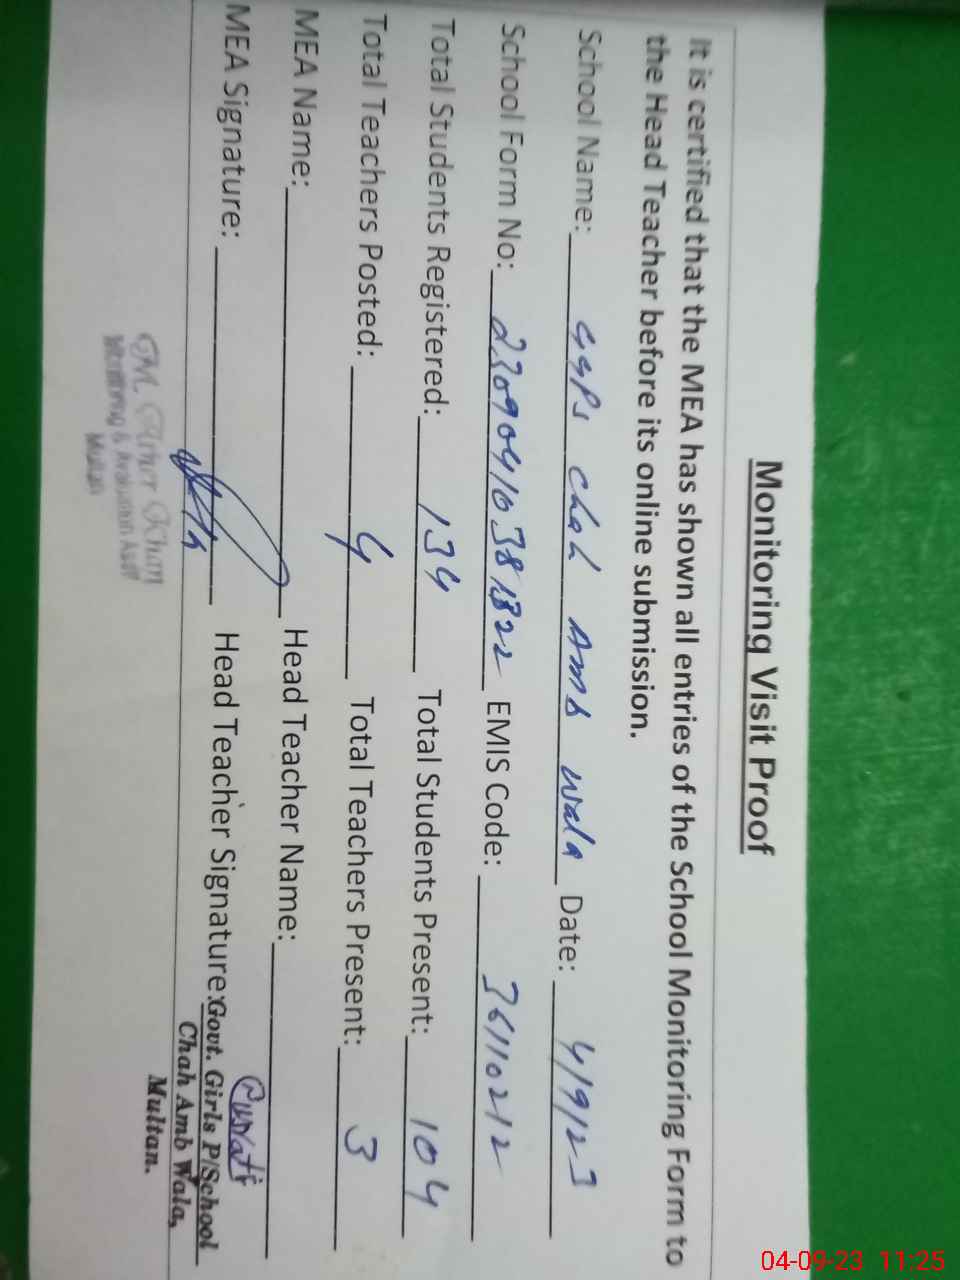 Monitoring Visit Proof
It is certified that the MEA has shown all entries of the School Monitoring Form to
the Head Teacher before its online submission.
School Name: GGPS Chah Amb Wala Date: 4/9/23
School Form No: EMIS Code: 36110212
Total Students Registered: 134 Total Students Present: 104
Total Teachers Posted: 4 Total Teachers Present: 3
MEA Name: Head Teacher Name:
MEA Signature: Head Teacher Signature: Govt. Girls P/School
Chah Amb Wala,
Multan.
Monitoring & Evaluation Asstt
Multan
04-09-23 11:25